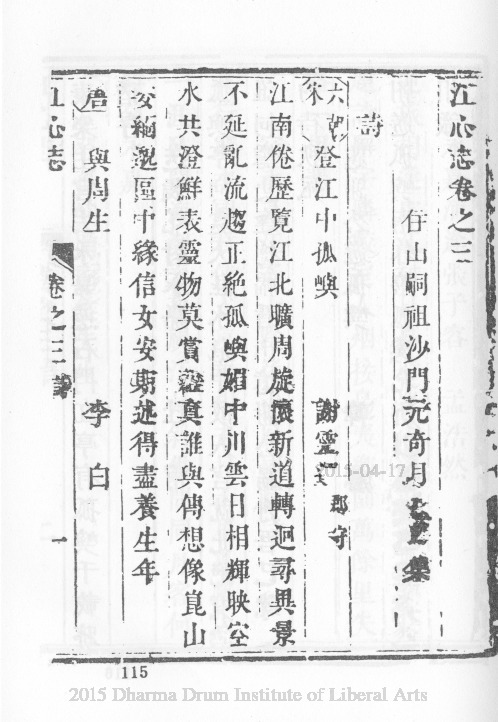 江心志卷之三
住山嗣祖沙門元奇月川 集
詩
六朝宋 登江中孤嶼 謝靈運 郡守
江南倦歷覽江北曠周旋懷新道轉迥尋異景
不延亂流趨正絶孤嶼媚中川雲日相輝映空
水共澄鮮表靈物莫賞蘊真誰與傳想像崑山
姿緬邈區中緣信女安期述得盡養生年
唐 與周生 李白
江心志 卷之三 詩 一
2015-04-17
115
2015 Dharma Drum Institute of Liberal Arts